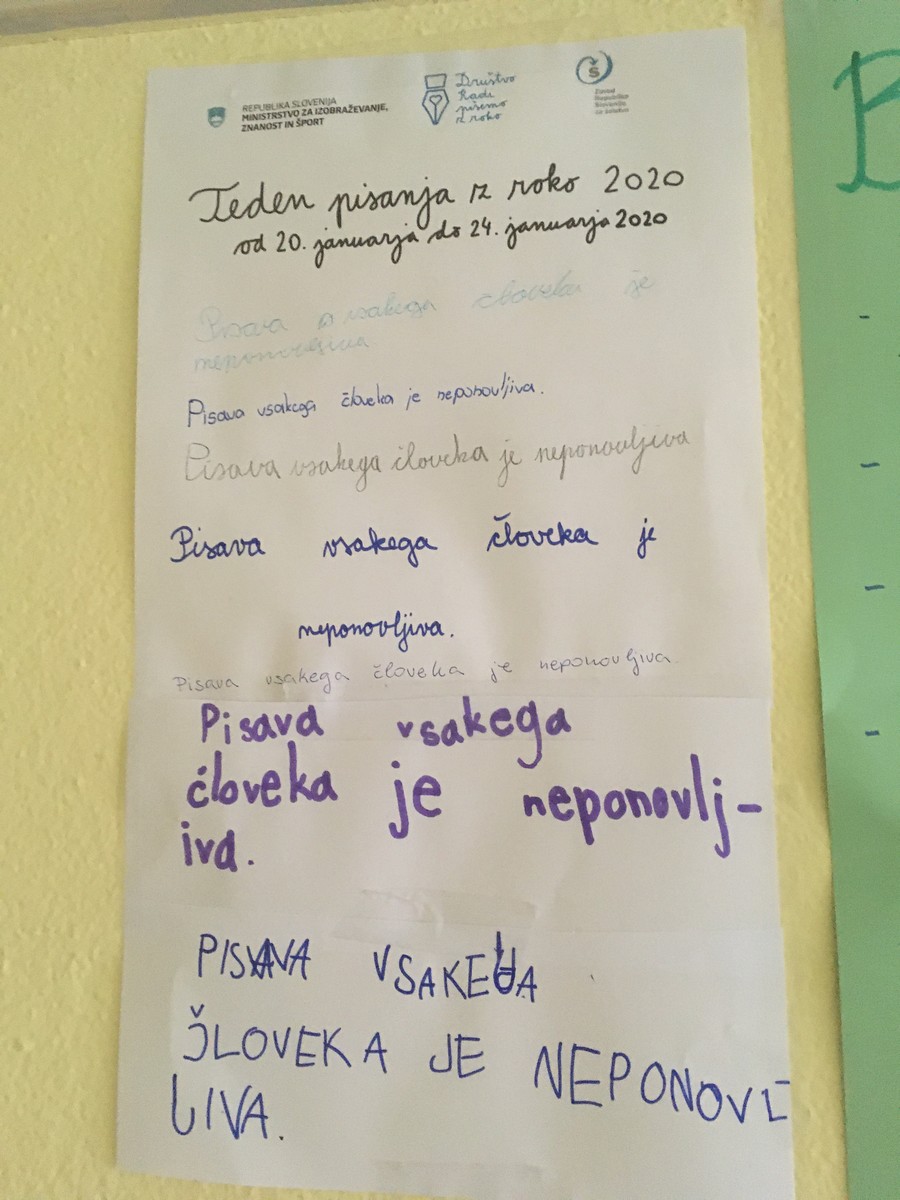 REPUBLIKA SLOVENIJA
MINISTRSTVO ZA IZOBRAŽEVANJE,
ZNANOST IN ŠPORT
Društvo
Radi
pišemo
z roko
Š
Zavod
Republike
Slovenije
za šolstvo
Teden pisanja z roko 2020
od 20. januarja do 24. januarja 2020
Pisava vsakega človeka je
neponovljiva
Pisava vsakega človeka je neponovljiva.
Pisava vsakega človeka je neponovljiva
Pisava vsakega človeka je
neponovljiva.
Pisava vsakega človeka je neponovljiva.
Pisava vsakega
človeka je neponovlj-
iva.
PISAVA VSAKEGA
ČLOVEKA JE NEPONOVL
JIVA.
B
-
-
-
-